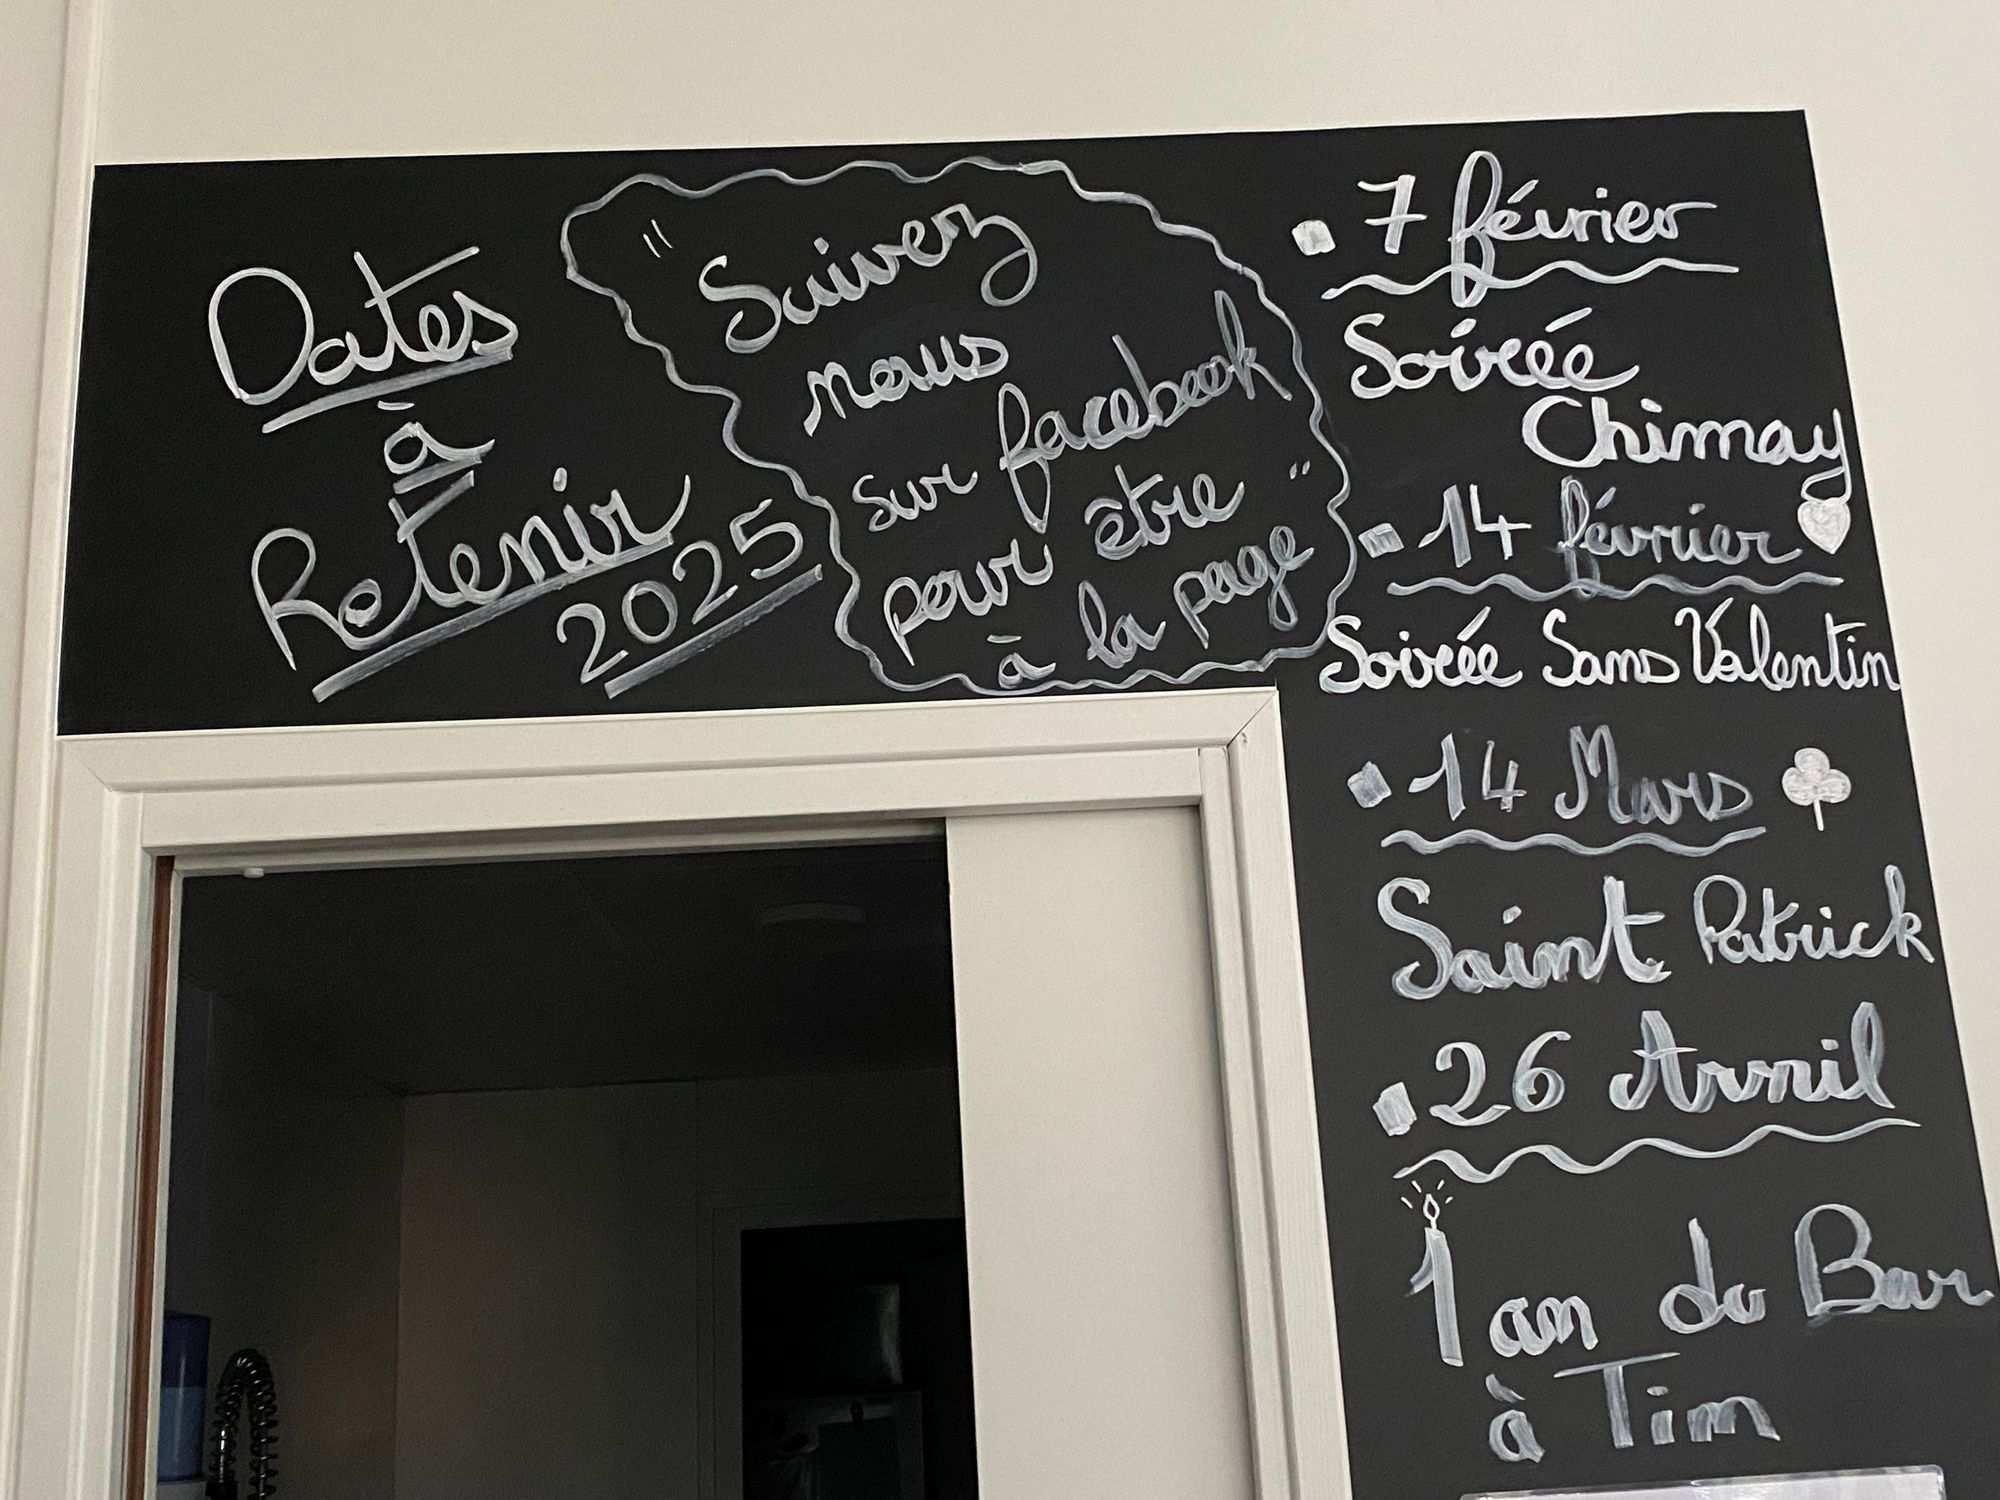 Dates
à
Retenir
2025
" Suivez
nous
sur facebook
pour être "
à la page
7 février
Soirée
Chimay
14 février
Soirée Sans Valentin
14 Mars
Saint Patrick
26 Avril
1 an do Bar
à Tim